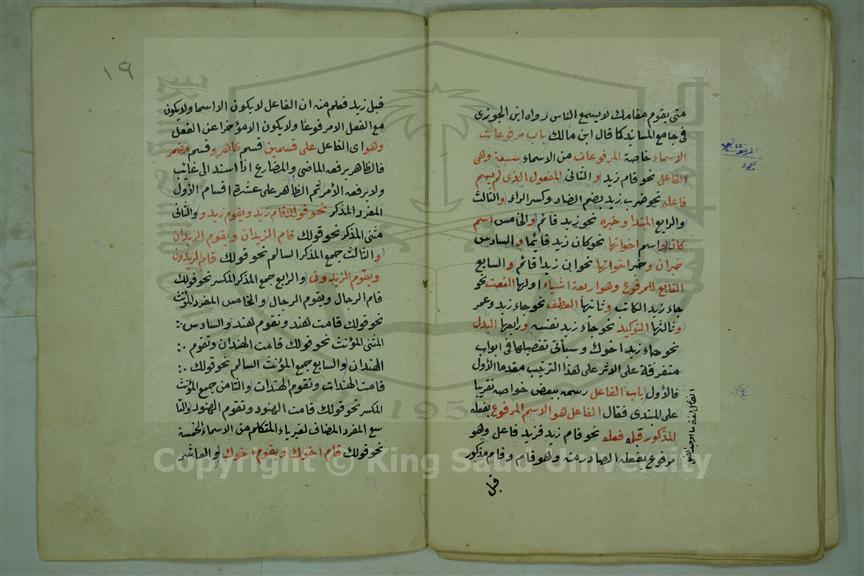 متى يقوم مقامك لا يسمع الناس رواه ابن الجوزى
فى جامع المسانيد كما قال ابن مالك باب مرفوعات
الاسماء خاصة المرفوعات من الاسماء سبعة وهى
الفاعل نحو قام زيد والثانى المفعول الذى لم يسم
فاعله نحو ضرب زيد بضم الضاد وكسر الراء والثالث
والرابع المبتدا وخبره نحو زيد قائم والخامس اسم
كان واسم اخواتها نحو كان زيد قائما والسادس
خبر ان وخبر اخواتها نحو ان زيدا قائم والسابع
التابع للمرفوع وهو اربعة اشياء اولها النعت نحو
جاء زيد الكاتب وثانيها العطف نحو جاء زيد وعمر
وثالثها التوكيد نحو جاء زيد نفسه ورابعها البدل
نحو جاء زيد اخوك وسياتى تفصيلها فى ابواب
متفرقة على الاثر على هذا الترتيب مقدما الأول
فالأول باب الفاعل رسمه ببعض خواصه تقريبا
على المبتدى فقال الفاعل هو الاسم المرفوع بفعله
المذكور قبله فعله نحو قام زيد فزيد فاعل وهو
مرفوع بفعله الصادر منه وهو قام وقام مذكور
قبل
١٩
قبل زيد فعلم منه ان الفاعل لا يكون الا اسما ولا يكون
مع الفعل الا مرفوعا ولا يكون الا مؤخرا عن الفعل
وهو اى الفاعل على قسمين قسم ظاهر وقسم مضمر
فالظاهر يرفعه الماضى والمضارع اذا اسند الى غائب
ولا يرفعه الامر ثم الظاهر على عشرة اقسام الأول
المفرد المذكر نحو قولك قام زيد ويقوم زيد والثانى
مثنى المذكر نحو قولك قام الزيدان ويقوم الزيدان
والثالث جمع المذكر السالم نحو قولك قام الزيدون
ويقوم الزيدون والرابع جمع المذكر المكسر نحو قولك
قام الرجال ويقوم الرجال والخامس المفرد المؤنث
نحو قولك قامت هند وتقوم هند والسادس
المثنى المؤنث نحو قولك قامت الهندان وتقوم
الهندان والسابع جمع المؤنث السالم نحو قولك
قامت الهندات وتقوم الهندات والثامن جمع المؤنث
المكسر نحو قولك قامت الهنود وتقوم الهنود والتا
سع المفرد المضاف لغير ياء المتكلم من الاسماء الخمسة
نحو قولك قام اخوك ويقوم اخوك والعاشر
Copyright © King Saud University